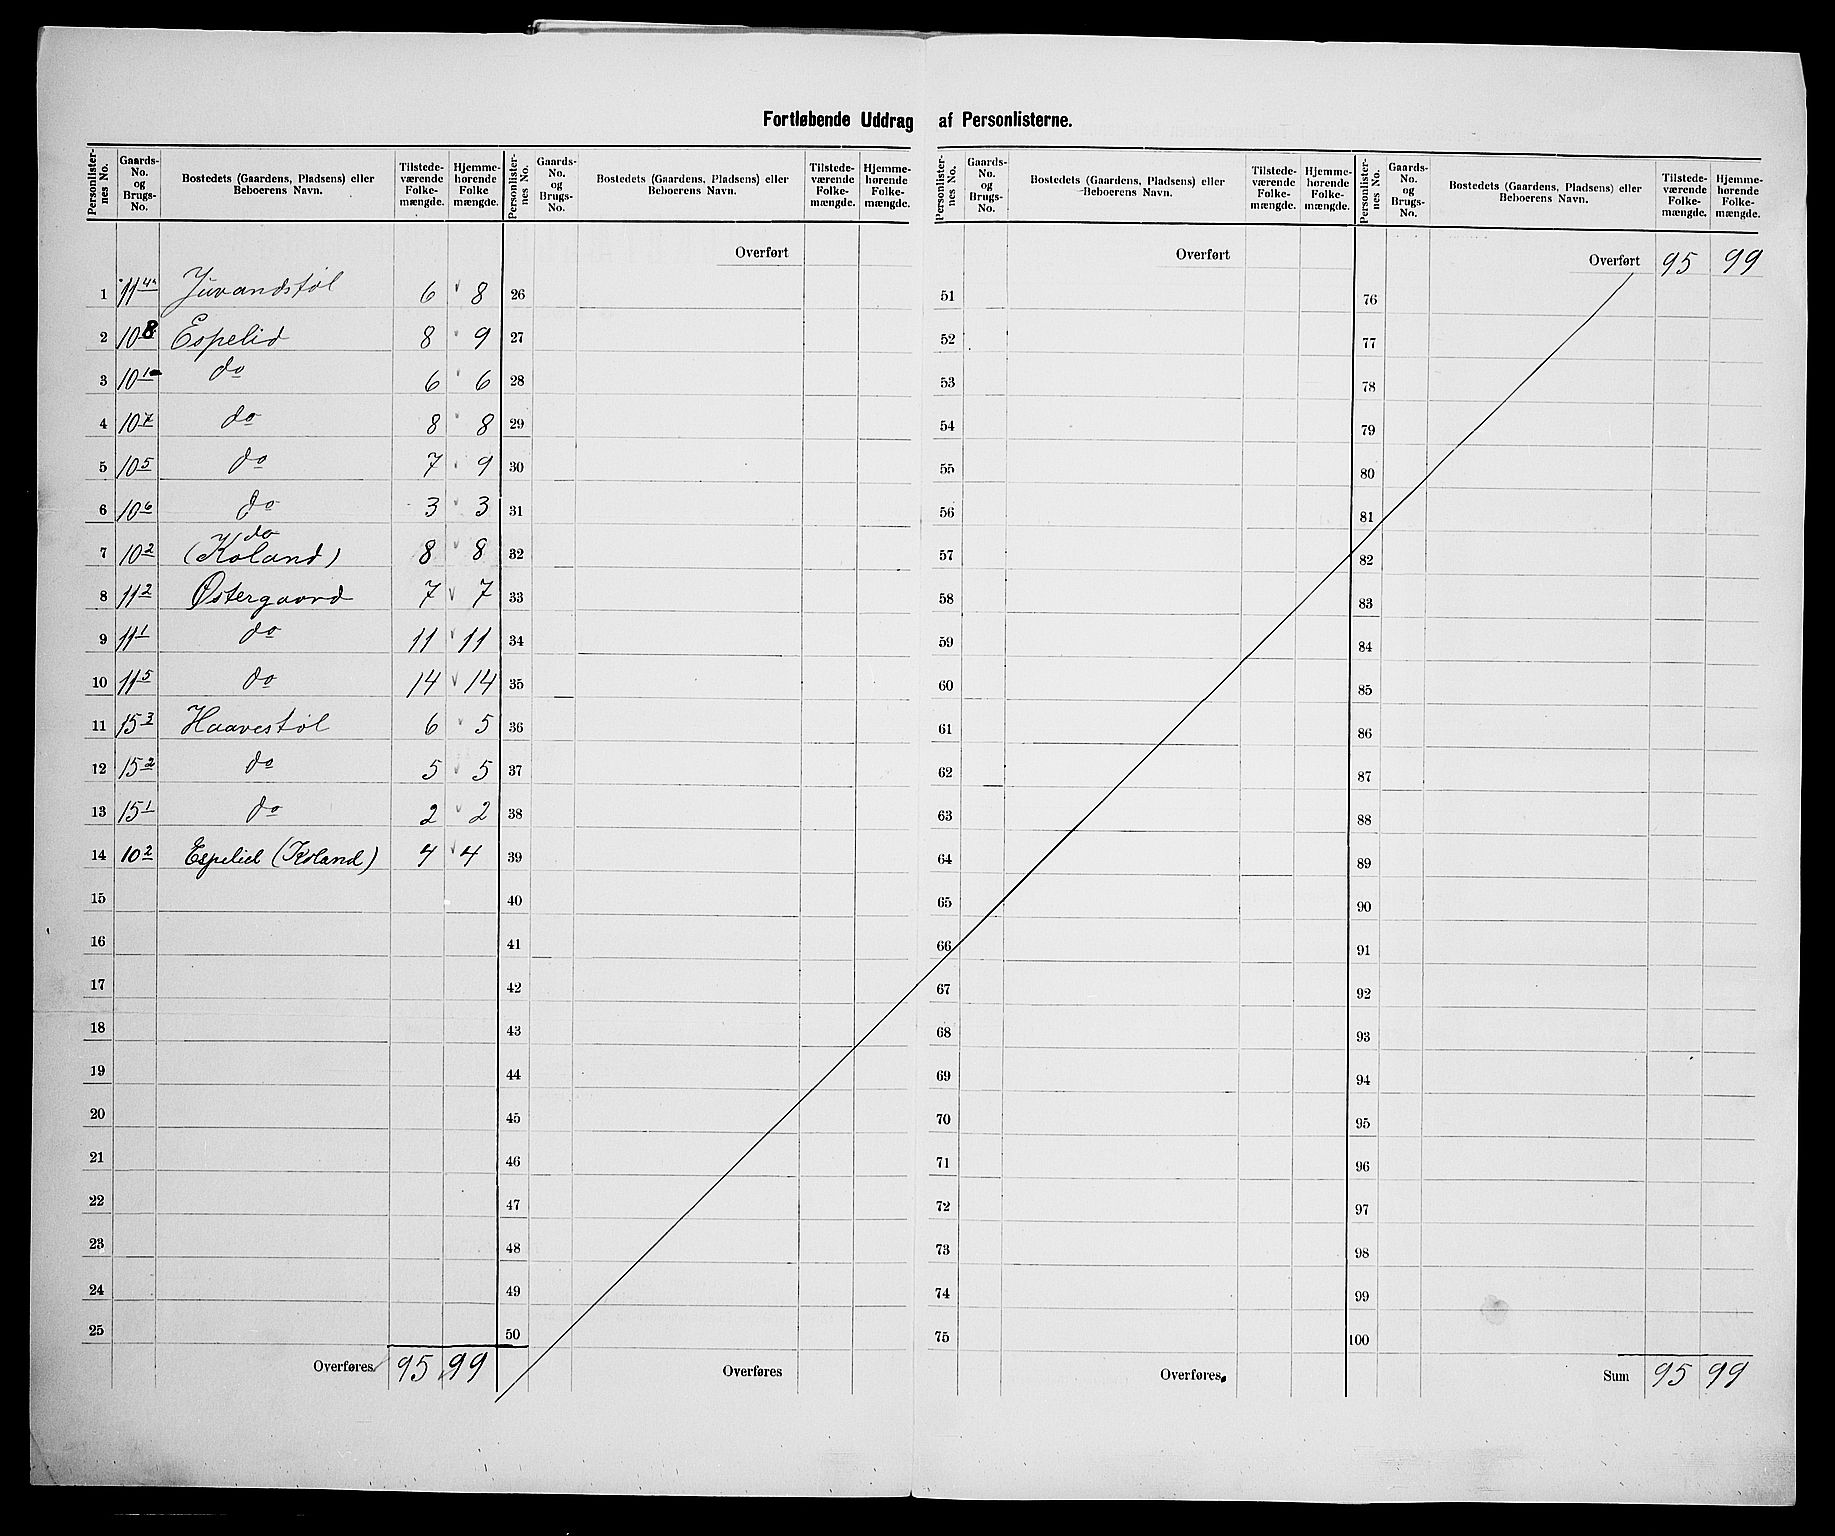 Fortløbende Uddrag af Personlisterne.
Personlister-nes No. | Gaards-No. og Brugs-No. | Bostedets (Gaardens, Pladsens) eller Beboerens Navn. | Tilstede-værende Folke-mængde. | Hjemme-hørende Folke mængde.
1 | 11 4 | Juvandstøl | 6 | 8
2 | 10 8 | Espelid | 8 | 9
3 | 10 1 | do | 6 | 6
4 | 10 7 | do | 8 | 8
5 | 10 5 | do | 7 | 9
6 | 10 6 | do | 3 | 3
7 | 10 2 | do (Koland) | 8 | 8
8 | 11 2 | Østergaard | 7 | 7
9 | 11 1 | do | 11 | 11
10 | 11 5 | do | 14 | 14
11 | 15 3 | Haavestøl | 6 | 5
12 | 15 2 | do | 5 | 5
13 | 15 1 | do | 2 | 2
14 | 10 2 | Espelid (Koland) | 4 | 4
15
16
17
18
19
20
21
22
23
24
25
Overføres | 95 | 99
Personlister-nes No. | Gaards-No. og Brugs-No. | Bostedets (Gaardens, Pladsens) eller Beboerens Navn. | Tilstede-værende Folke-mængde. | Hjemme-hørende Folke-mængde.
Overført
26
27
28
29
30
31
32
33
34
35
36
37
38
39
40
41
42
43
44
45
46
47
48
49
50
Overføres
Personlister-nes No. | Gaards-No. og Brugs-No. | Bostedets (Gaardens, Pladsens) eller Beboerens Navn. | Tilstede-værende Folke-mængde. | Hjemme-hørende Folke-mængde.
Overført
51
52
53
54
55
56
57
58
59
60
61
62
63
64
65
66
67
68
69
70
71
72
73
74
75
Overføres.
Personlister-nes No. | Gaards-No. og Brugs-No. | Bostedets (Gaardens, Pladsens) eller Beboerens Navn. | Tilstede-værende Folke-mængde. | Hjemme-hørende Folke-mængde.
Overført | 95 | 99
76
77
78
79
80
81
82
83
84
85
86
87
88
89
90
91
92
93
94
95
96
97
98
99
100
Sum | 95 | 99